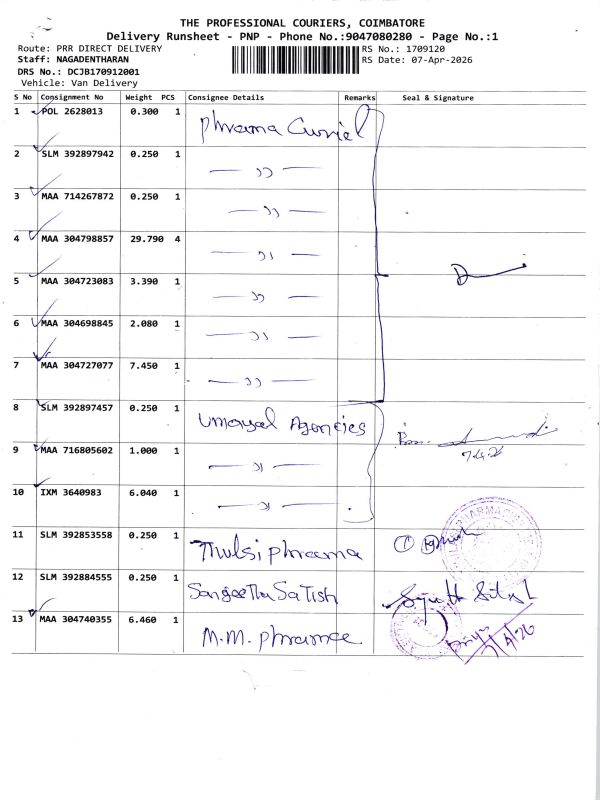 THE PROFESSIONAL COURIERS, COIMBATORE
Delivery Runsheet - PNP - Phone No.:9047080280 - Page No.:1
Route: PRR DIRECT DELIVERY
RS No.: 1709120
Staff: NAGADENTHARAN
RS Date: 07-Apr-2026
DRS No.: DCJB170912001
Vehicle: Van Delivery
S No Consignment No Weight PCS Consignee Details Remarks Seal & Signature
1 POL 2628013 0.300 1 Phrama Curriel
2 SLM 392897942 0.250 1 — ,, —
3 MAA 714267872 0.250 1 — ,, —
4 MAA 304798857 29.790 4 — ,, —
5 MAA 304723083 3.390 1 — ,, —
6 MAA 304698845 2.080 1 — ,, —
7 MAA 304727077 7.450 1 — ,, —
8 SLM 392897457 0.250 1 Umayal Agencies
9 MAA 716805602 1.000 1 — ,, — 7.4.26
10 IXM 3640983 6.040 1 — ,, —
11 SLM 392853558 0.250 1 Thulsi phrama
12 SLM 392884555 0.250 1 Sangeetha Satish
13 MAA 304740355 6.460 1 M.M. phramce 7/4/26